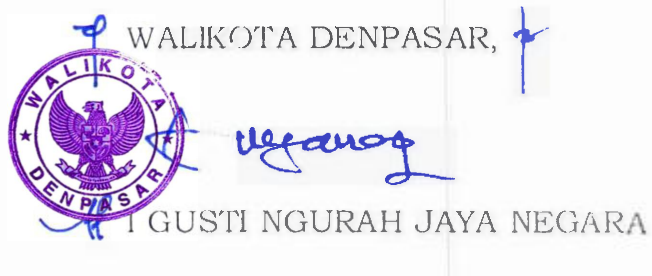 WALIKOTA DENPASAR,
WALIKOTA
DENPASAR
I GUSTI NGURAH JAYA NEGARA